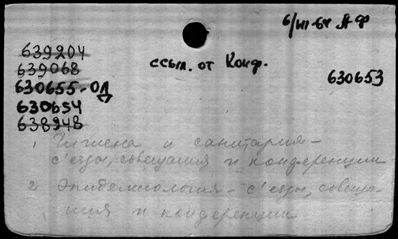 6/III-64 АФ
639204
639068
ссыл. от Конф.
630655-ОД
630653
630654
638948
1. Гигиена и санитария-
съезды, совещания и конференции
2. Эпидемиология - съезды, совеща-
ния и конференции